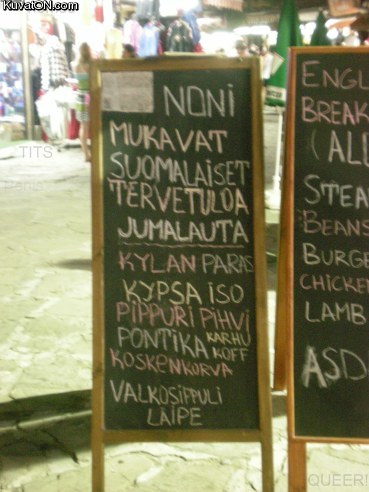 KuvatON.com
NONI
MUKAVAT
SUOMALAISET
TERVETULOA
JUMALAUTA
KYLAN PARAS
KYPSA ISO
PIPPURI PIHVI
PONTIKA KARHU
KOFF
KOSKENKORVA
VALKOSIPPULI
LÄIPE
ENGL
BREAK
(ALL
STEA
BEANS
BURGE
CHICKEN
LAMB
ASD
TITS
QUEERI